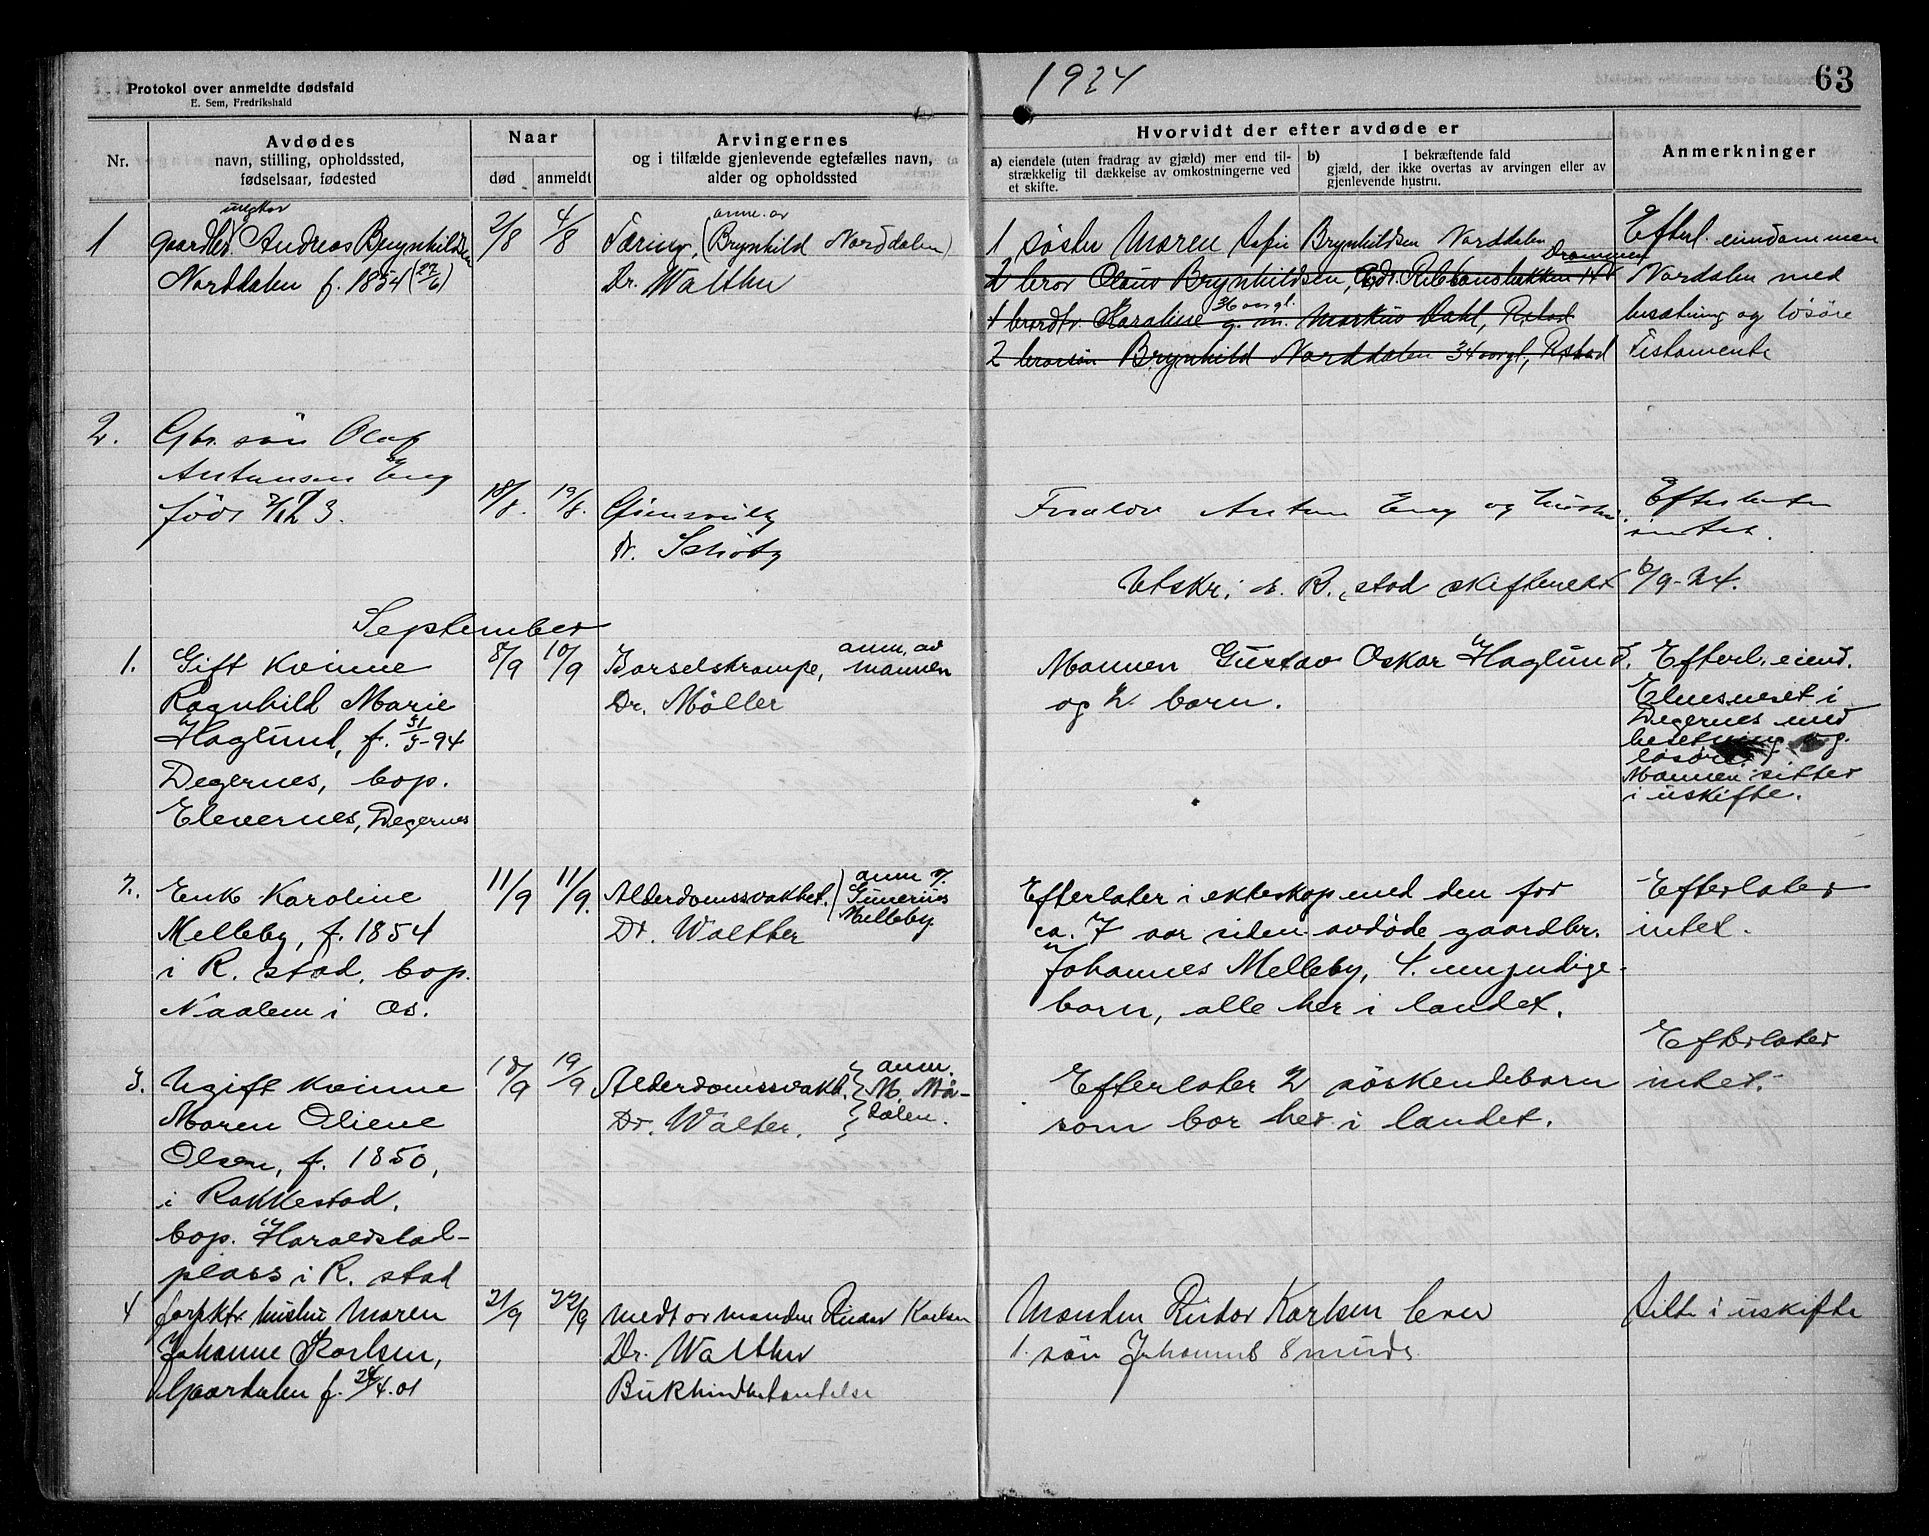 Protokol over anmeldte dødsfald
E. Sem, Fredrikshald
1924
63
Nr.
Avdødes
navn, stilling, opholdssted,
fødselsaar, fødested
Naar
død
anmeldt
Arvingernes
og i tilfælde gjenlevende egtefælles navn,
alder og opholdssted
Hvorvidt der efter avdøde er
a) eiendele (uten fradrag av gjæld) mer end til-
strækkelig til dækkelse av omkostningerne ved
et skifte.
b) I bekræftende fald
gjæld, der ikke overtas av arvingen eller av
gjenlevende hustru.
Anmerkninger
1
ungkar
gaardbr. Andreas Brynhildsen
Norddalen f. 1854 (27/6)
2/8
4/8
Tæring, (Brynhild Norddalen)
anm. av
Dr. Walther
1 søster Maren Sofie Brynhildsen Norddalen
Drammen
2 bror Olaus Brynhildsen, Adr.
1 brordtr. Karoline 36 aar gl. g. m. Markus Dahl, R.stad
2 brorsøn Brynhild Norddalen 34 aar gl, R.stad
Efterl. eiendommen
Nordalen med
besætning og løsøre
Testamente
2.
Gbr. søn Olaf
Antonsen Eng
född
18/8.
19/8.
Dr.
Anton Eng og hustru.
Efterlater
intet.
Utskr. R.stad skifteret 6/9-24.
September
1.
Gift kvinne
Ragnhild Marie
Haglund, f. 31/5-94
Degernes, bop.
Elevernes, Degernes
8/9
10/9
Barselskrampe,
anm. av
mannen
Dr. Møller
Mannen Gustav Oskar Haglund.
og 2 barn.
Efterl. eiend.
i
Degernes med
besetning og
løsøre.
Mannen sitter
i uskifte.
2.
Enke Karoline
Melleby, f. 1854
i R. stad, bop.
Naalem i Os.
11/9
11/9.
Alderdomssvakhet.
anm. v.
Gunerius
Melleby.
Dr. Walther
Efterlater i ekteskap med den for
ca. 7 aar siden avdøde gaardbr.
Johannes Melleby, 4 myndige
barn, alle her i landet.
Efterlater
intet.
3.
Ugift kvinne
Maren Oliene
Olsen, f. 1850,
i Rakkestad.
bop. Haraldstad-
plass i R. stad
18/9
19/9
Alderdomssvakh.
anm.
M. Mø-
dalen.
Dr. Walter.
Efterlater 2 søskendebarn
som bor her i landet.
Efterlater
intet.
4
forpktr. hustru Maren
Johanne Karlsen,
Gaardalen f. 24/4.01
21/9
22/9
Medt av manden Karlsen
Dr. Walther
Bukhindebetændelse
Manden Karlsen lever
1. søn Johannes 8 mnds.
Sitte i uskifte